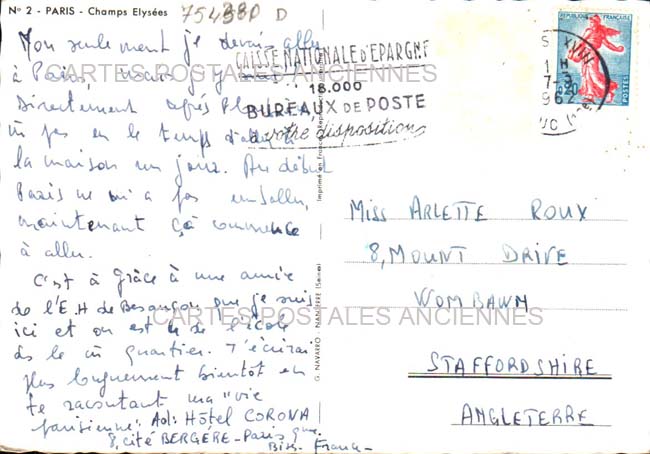 Nº 2 - PARIS - Champs Elysées
754880 D
Non seulement je devais aller
à Paris, mais j'y
Directement après
pas eu le temps d'aller à
la maison un jour. Au début
Paris ne m'a pas emballer,
maintenant çà commence
à aller.
C'est à grâce à une amie
de l'E.H de Besançon que je suis
ici et on est de l'école
ds le m quartier. T'écrirai
plus longuement bientôt en
te racontant ma "vie
parisienne". Ad: Hôtel CORONA
8, cité BERGÈRE - Paris 9me
Bis. France -
CAISSE NATIONALE D'EPARGNE
18.000
BUREAUX DE POSTE
à votre disposition
Imprimé en France
G. NAVARRO - NANTERRE (Seine)
REPUBLIQUE FRANÇAISE
0,20
POSTES
PARIS XVIII
1 H
7-3
1962
Miss ARLETTE ROUX
8, MOUNT DRIVE
WOMBAWN
STAFFORDSHIRE
ANGLETERRE
CARTES POSTALES ANCIENNES
CARTES POSTALES ANCIENNES